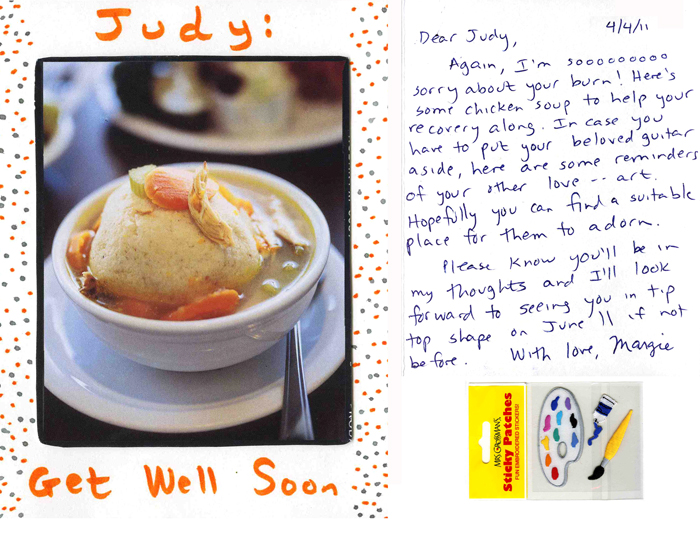 Judy:
Get Well Soon
4/4/11
Dear Judy,
Again, I'm soooooooooo
sorry about your burn! Here's
some chicken soup to help your
recovery along. In case you
have to put your beloved guitar
aside, here are some reminders
of your other love -- art.
Hopefully you can find a suitable
place for them to adorn.
Please know you'll be in
my thoughts and I'll look
forward to seeing you in tip
top shape on June 11 if not
before. With love, Margie
MRS. GROSSMAN'S
Sticky Patches
FUN EMBROIDERED STICKERS!